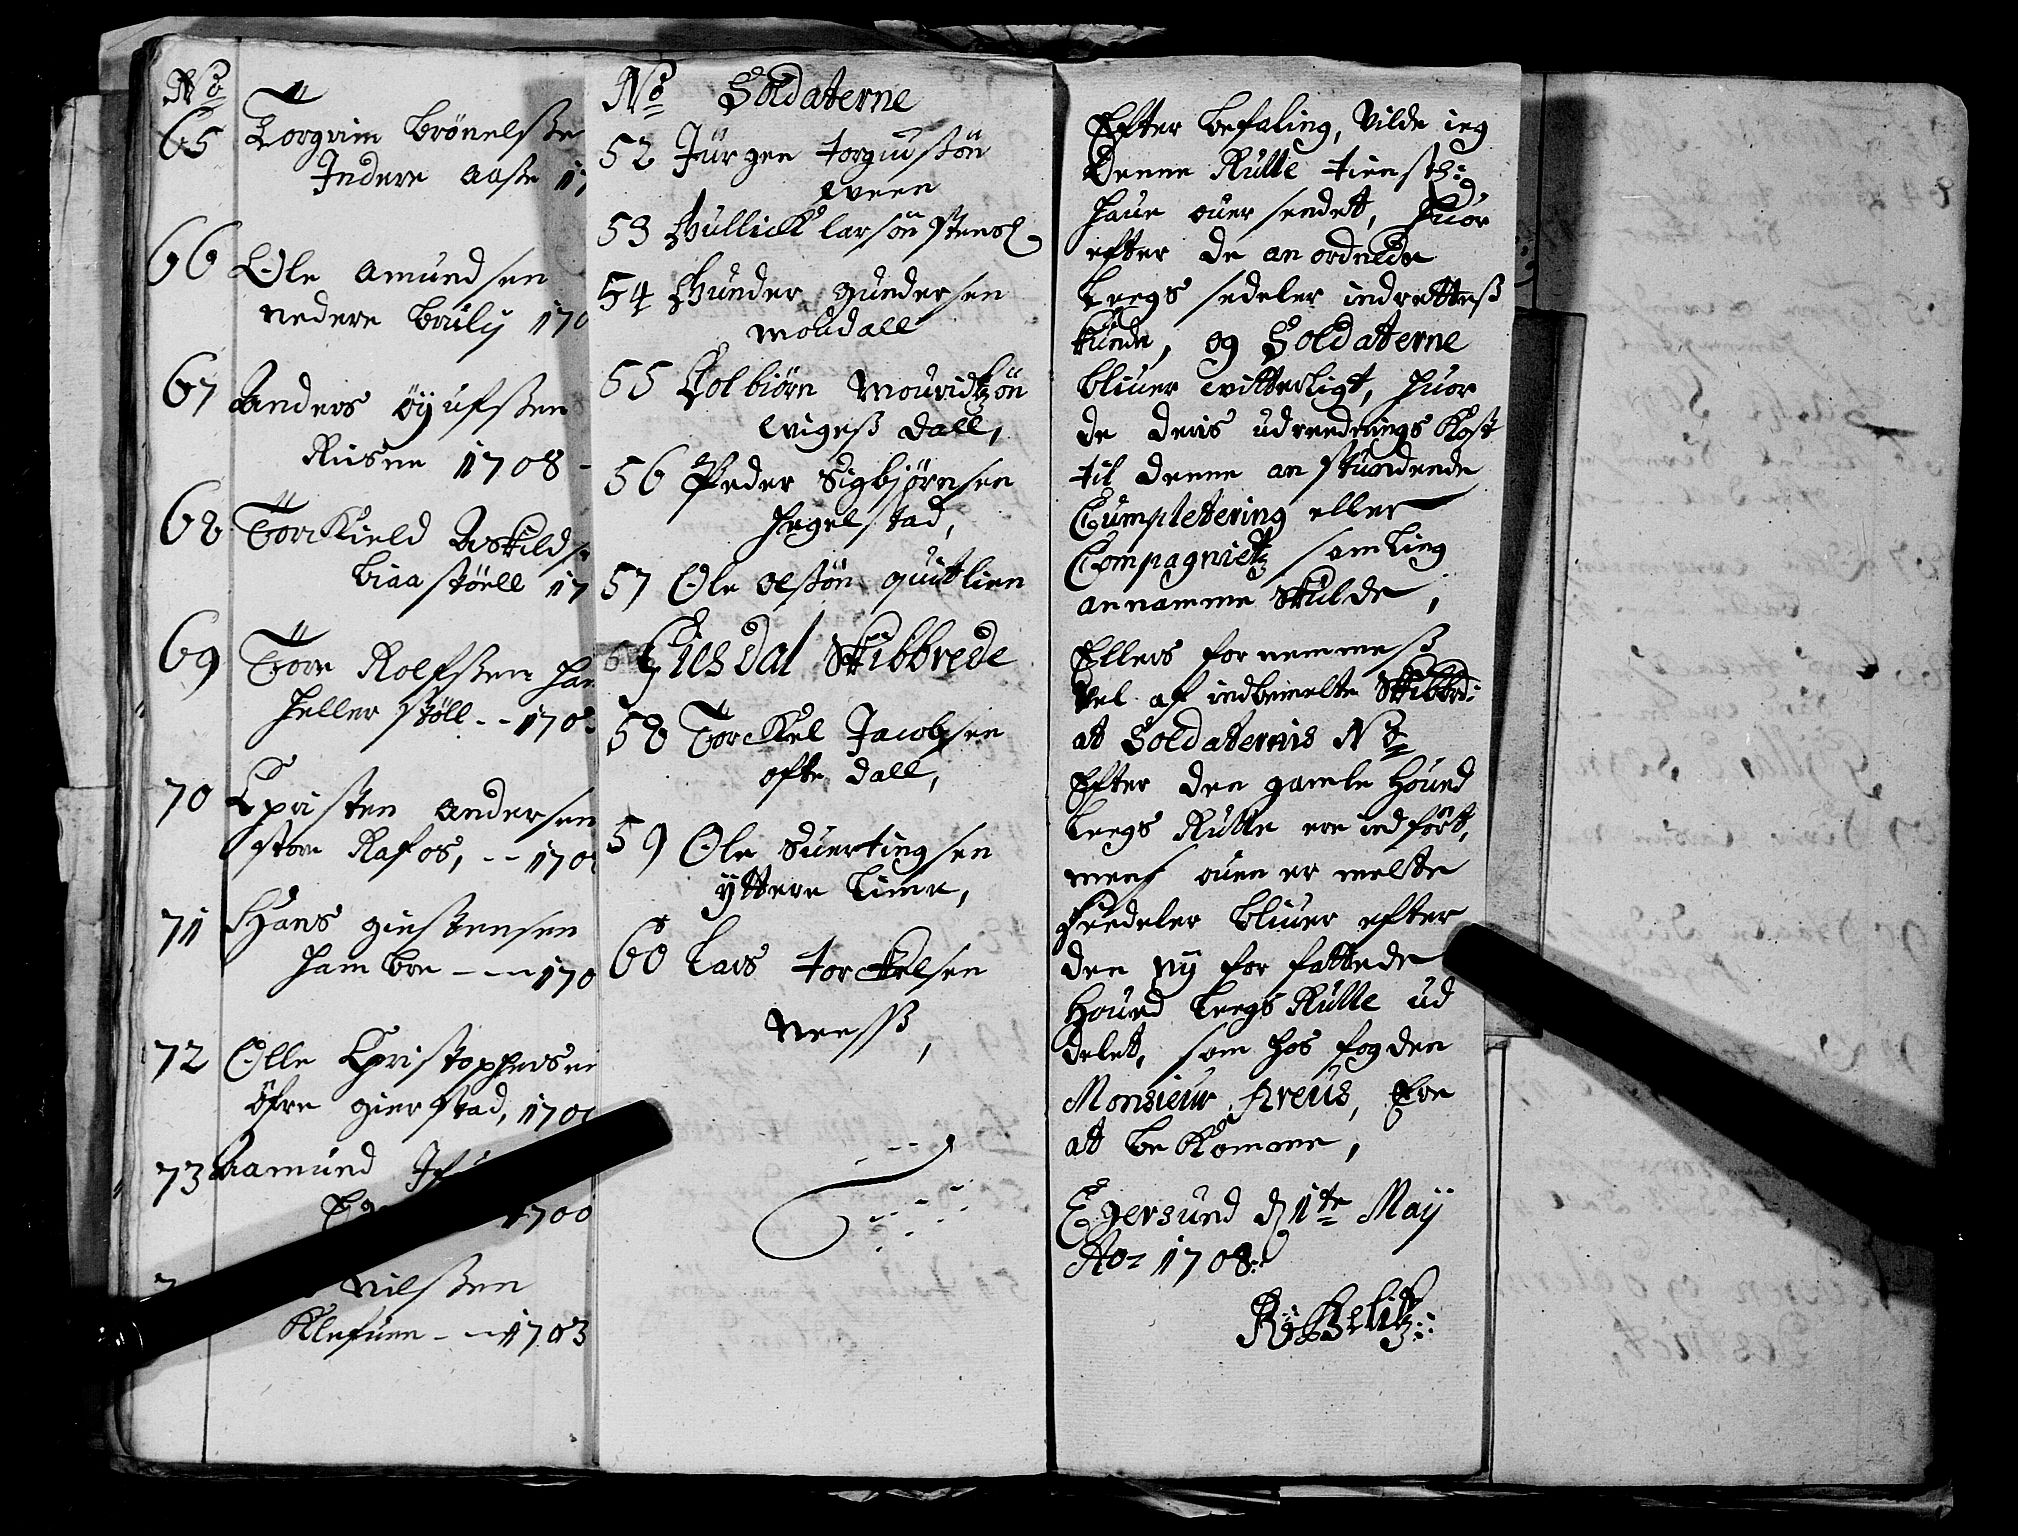 No
65 Torgrim Brönelsße
Indere aase 17
66 Ole Amundsen
nedere Bruly 170
67 Anders öÿufsßen
Riisne 1708 -
68 Torckield Askilds
biaastöell 17
69 Torre Rolfsßen
Hellerstöll - - 170
70 Christen Andersen
store Rafos, - - 170
71 Hans giestensen
Hambre - - - 170
72 Olle Christophersen
öfre gierstad, 170
73 Aamund
1700
Nilsßen
Klefuen - - 1703
No Soldaterne
52 Jürgen torgiusßön
Eveen
53 Gullick larsön
54 Gunder gundersen
moudall
55 Colbiörn Mouridtzön
Evigeß dall,
56 Peder Sigbjørnsen
Hegelstad,
57 Ole olsßön quitlien
Giesdal Skibbrede
58 Torckel Jacobsen
ofte dall,
59 Ole Suertingsen
ÿttere Lime,
60 Lars torckelsen
Neessß,
Efter befaling, Vilde ieg
denne Rulle tienstl:
haue ouersendet, huor
efter de anordnede
Leegs sedeler indretteß
kunde, og Soldaterne
bliuer vitterligt, huor
de deris udreednings kost
til denne anstundende
Cumpletering eller
Compagniedtz samling
annamme skulde,
Ellers fornemmeß
vel af indbemelte Skibbrd:
at Soldaternis No
Efter den gamle Houed
Leegs Rulle ere indført,
menß ouenermelte
Seedeler bliuer efter
den nÿ forfattede
Houed Leegs Rulle ud
delet, som hos fogden
Monsieur Kreus, Ere
at bekomme,
Egersund d 1te Maÿ
Ao 1708